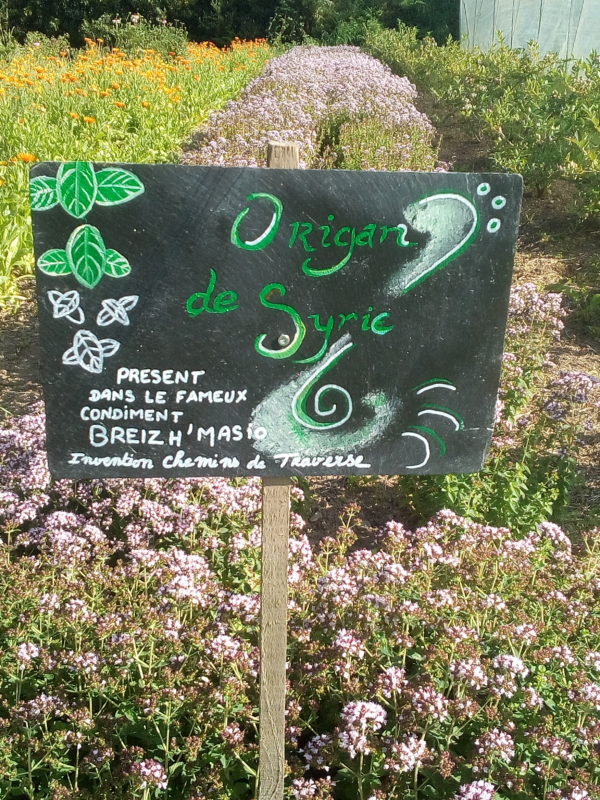 Origan
de Syrie
PRESENT
DANS LE FAMEUX
CONDIMENT
BREIZH'MASIO
Invention Chemins de Traverse